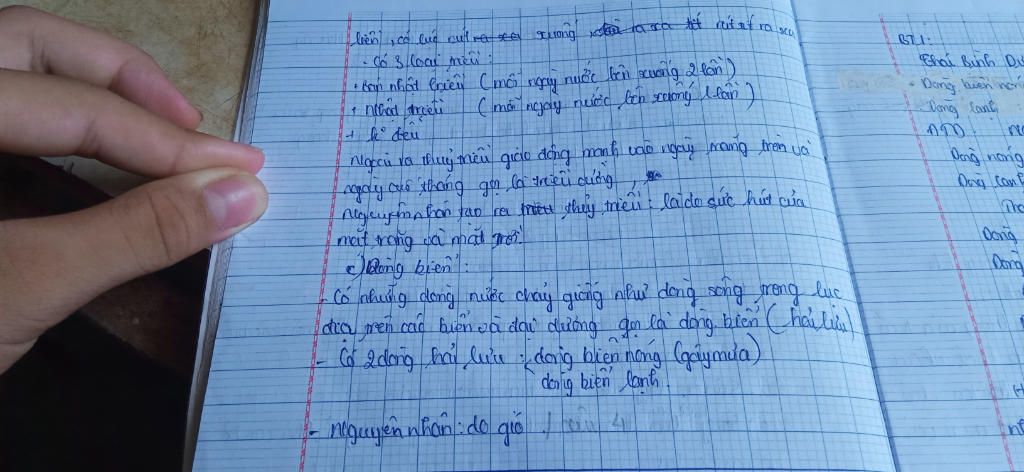 biển, có lúc rút xuống rút rớt ra xa
- Có 3 loại triều:
+ bán nhật triều (mỗi ngày nước lên xuống 2 lần)
+ nhật triều (mỗi ngày nước lên xuống 1 lần)
+ k° đều
Ngoài ra thuỷ triều giao động mạnh vào ngày trăng tròn và
ngày cuối tháng gọi là triều cường
nguyên nhân tạo ra thủy triều: là do sức hút của
mặt trăng và mặt trời.
c) Dòng biển:
- Có những dòng nước chảy giống như dòng sông trong lục
địa trên các biển và đại dương gọi là dòng biển (hải lưu)
- Có 2 dòng hải lưu: dòng biển nóng (gây mưa)
dòng biển lạnh
- nguyên nhân: do gió
BT1:
Thái Bình Dư
- Dòng biển nón
Dòng lạnh
ATD:
Dòng nóng
Dòng lạnh
Dòng
Dòng